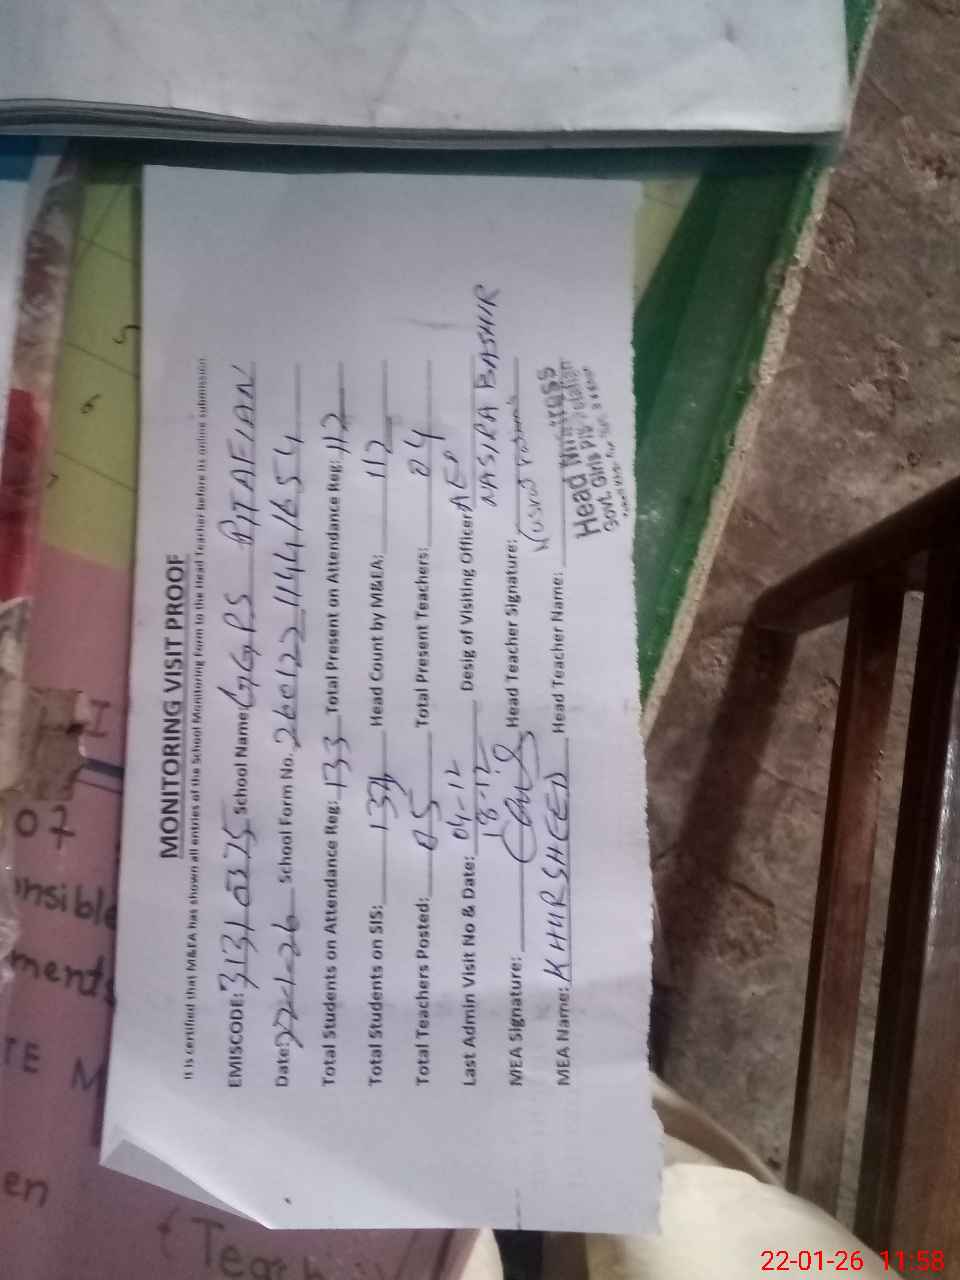 MONITORING VISIT PROOF
It is certified that M&EA has shown all entries of the School Monitoring Form to the Head Teacher before its online submission
EMISCODE: 31310375 School Name: GGPS PITAFIAN
Date: 22-1-26 School Form No. 260122 1144 1654
Total Students on Attendance Reg: 133 Total Present on Attendance Reg: 112
Total Students on SIS: 134 Head Count by M&EA: 112
Total Teachers Posted: 05 Total Present Teachers: 04
Last Admin Visit No & Date: 04-12 18-12 Desig of Visiting Officer: AEO NASIRA BASHIR
MEA Signature: Head Teacher Signature:
MEA Name: KHURSHEED Head Teacher Name:
Head Mistress
Govt. Girls P/S
5
6
7
07
nsible
ments
TE M
en
22-01-26 11:58